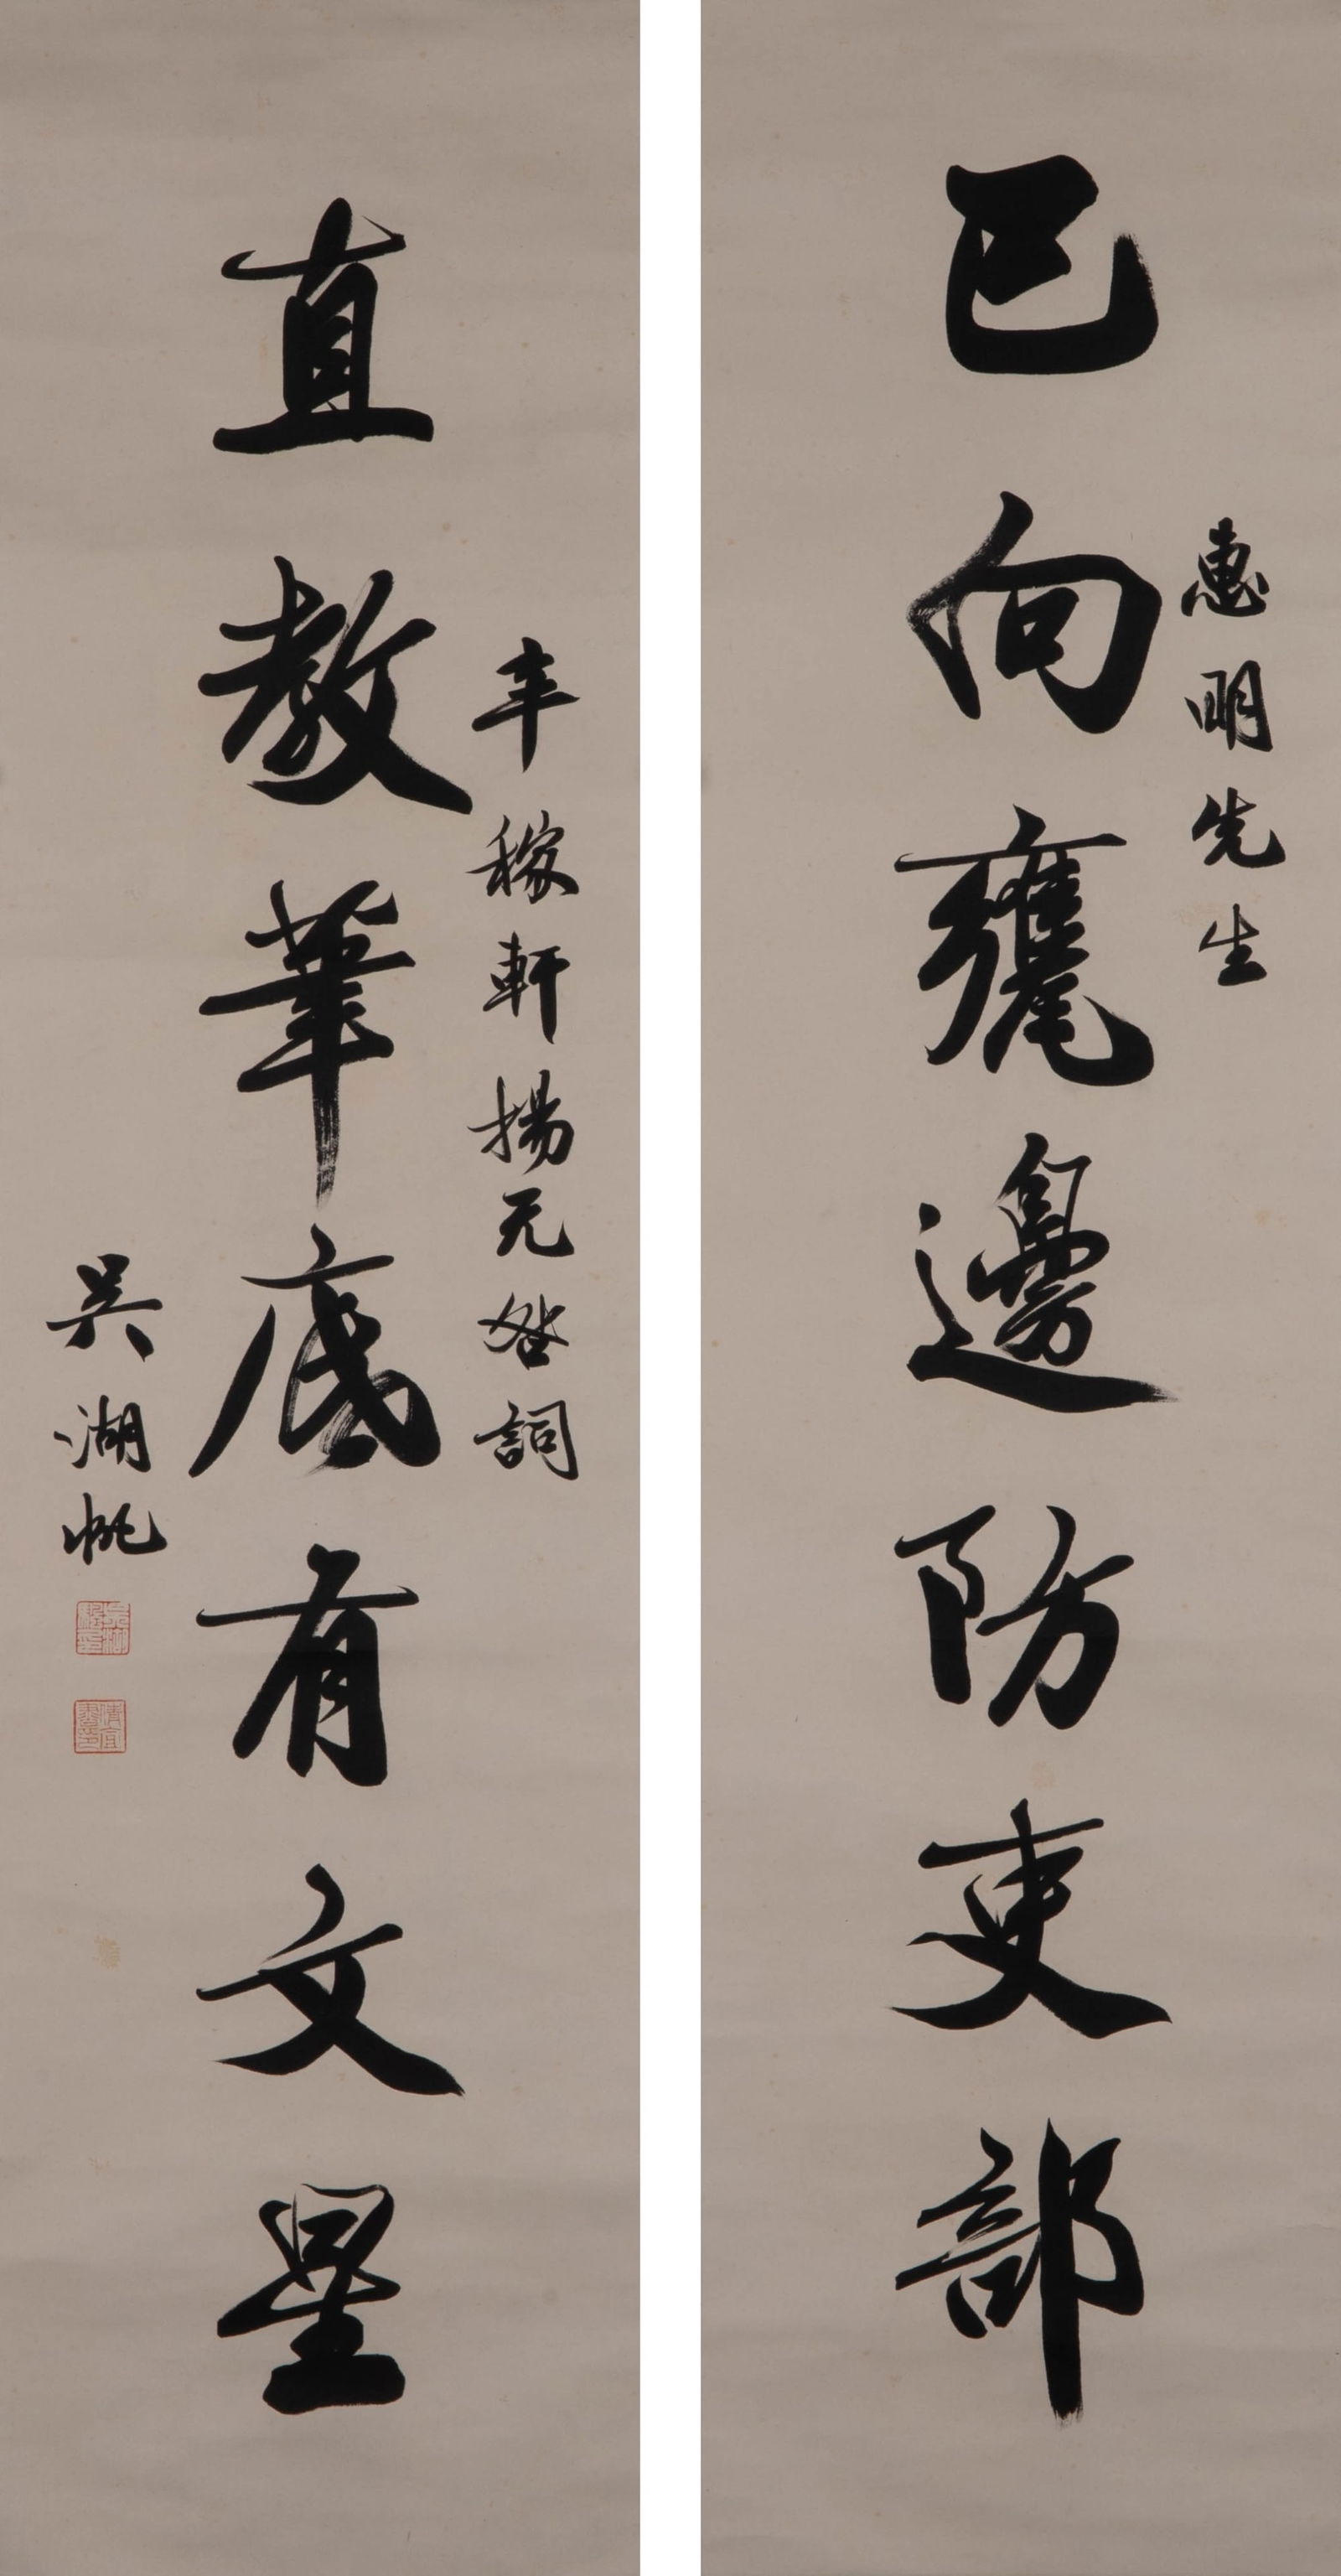 惠明先生
已向甕邊防吏部
辛稼軒楊无咎詞
直教筆底有文星
吳湖帆